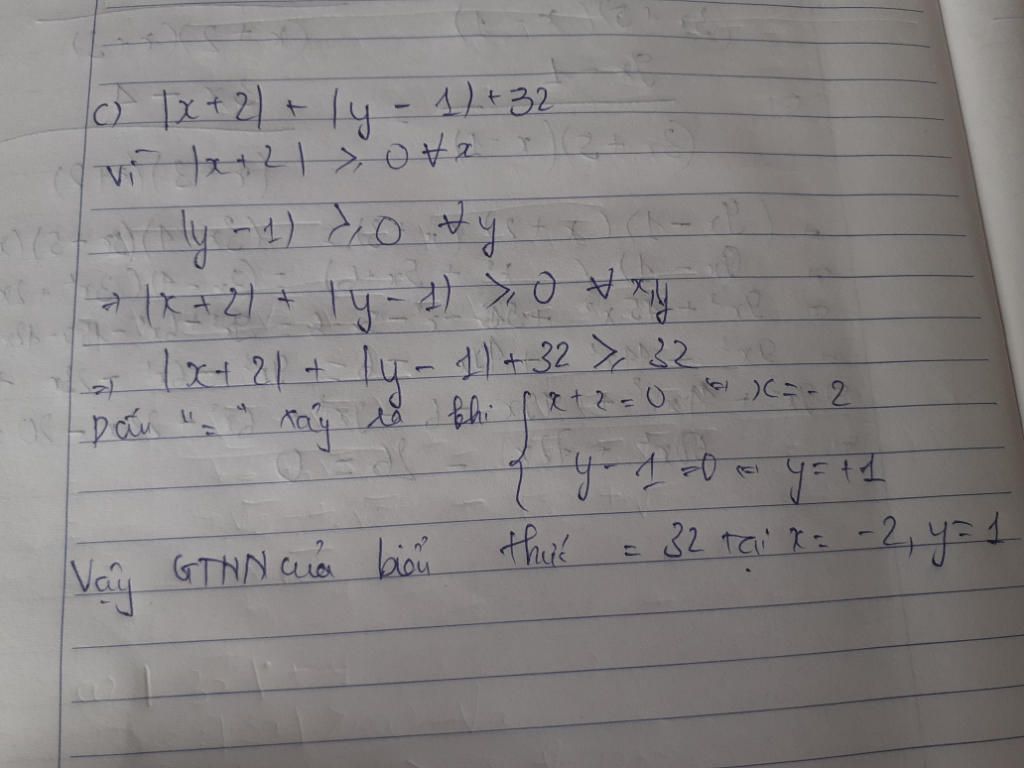 c) |x+2| + |y - 1| + 32
vì |x+2| ⩾ 0 ∀x
|y - 1| ⩾ 0 ∀y
⇒ |x+2| + |y - 1| ⩾ 0 ∀ x,y
⇒ |x+2| + |y - 1| + 32 ⩾ 32
Dấu "=" xảy ra khi { x+2=0 ⇔ x=-2
y - 1 =0 ⇔ y=+1
Vậy GTNN của biểu thức = 32 tại x= -2, y=1